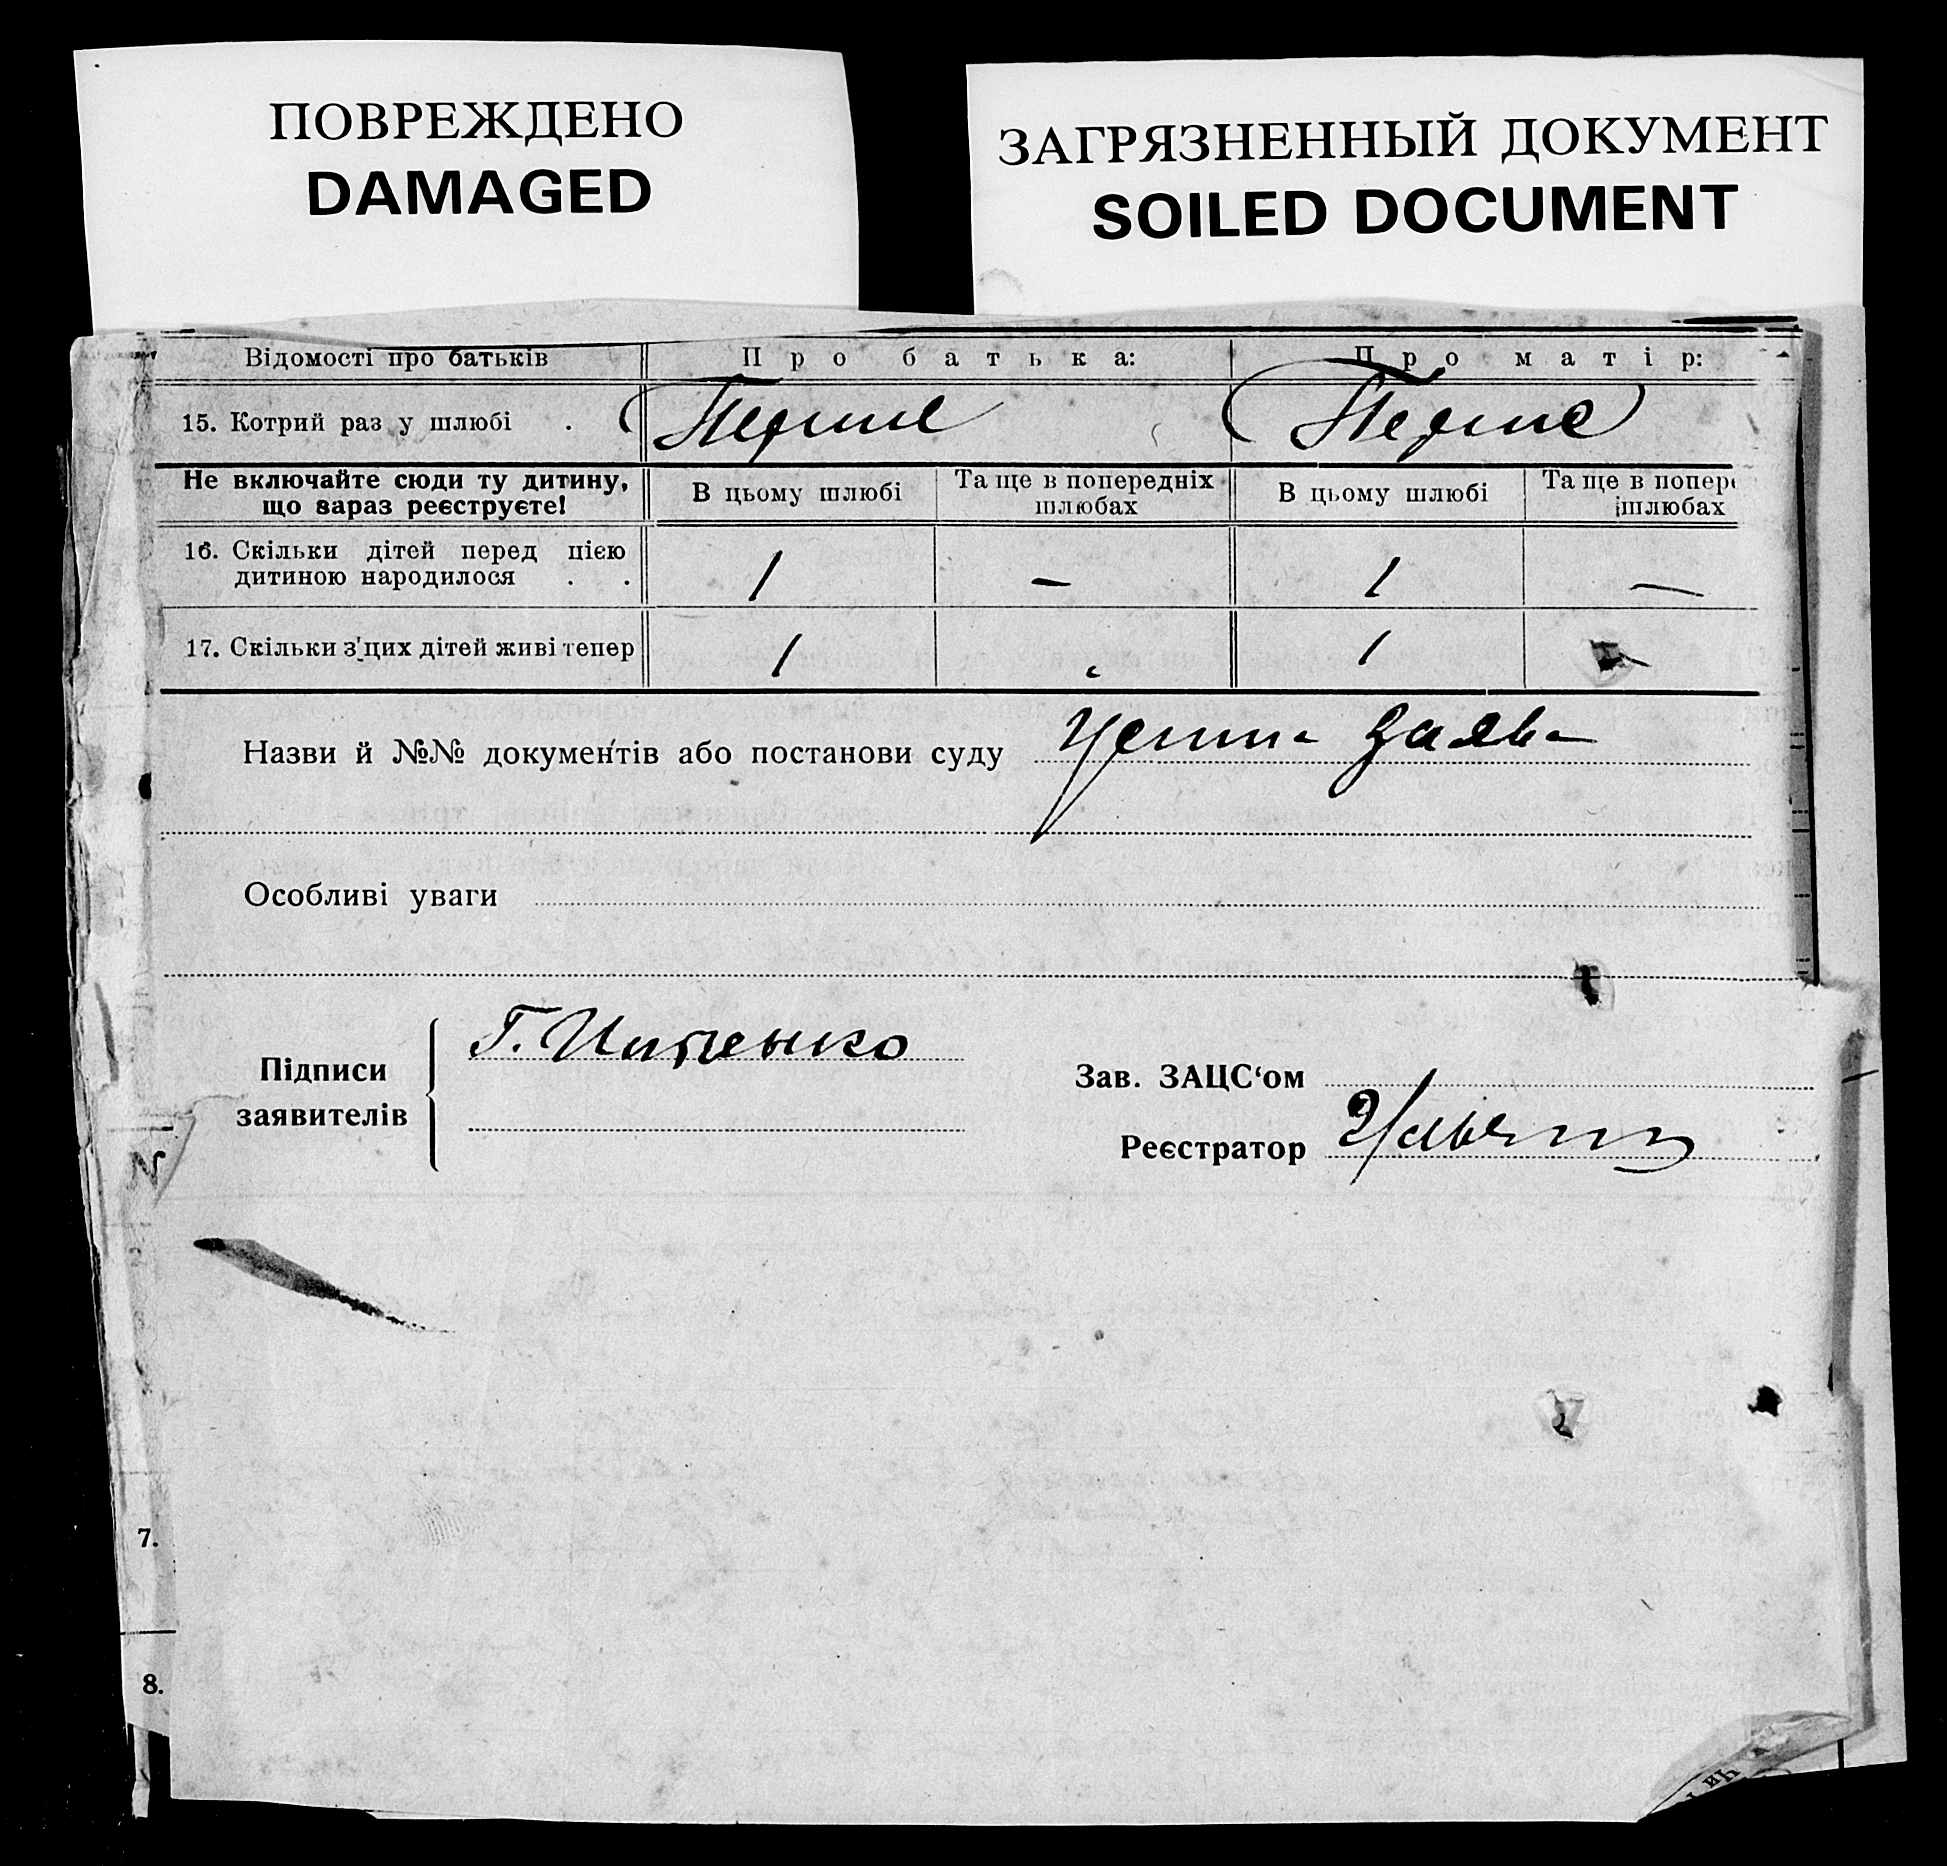 ПОВРЕЖДЕНО
DAMAGED
ЗАГРЯЗНЕННЫЙ ДОКУМЕНТ
SOILED DOCUMENT
Відомості про батьків Про батька: Про матір:
15. Котрий раз у шлюбі . Перше Перше
Не включайте сюди ту дитину,
що зараз реєструєте!
В цьому шлюбі
Та ще в попередніх
шлюбах
В цьому шлюбі
Та ще в попере
шлюбах
16. Скільки дітей перед цією
дитиною народилося . . 1 — 1 —
17. Скільки з цих дітей живі тепер 1 1
Назви й №№ документів або постанови суду заява
Особливі уваги
Підписи
заявителів
Г.
Зав. ЗАЦС‘ом
Реєстратор
7.
8.